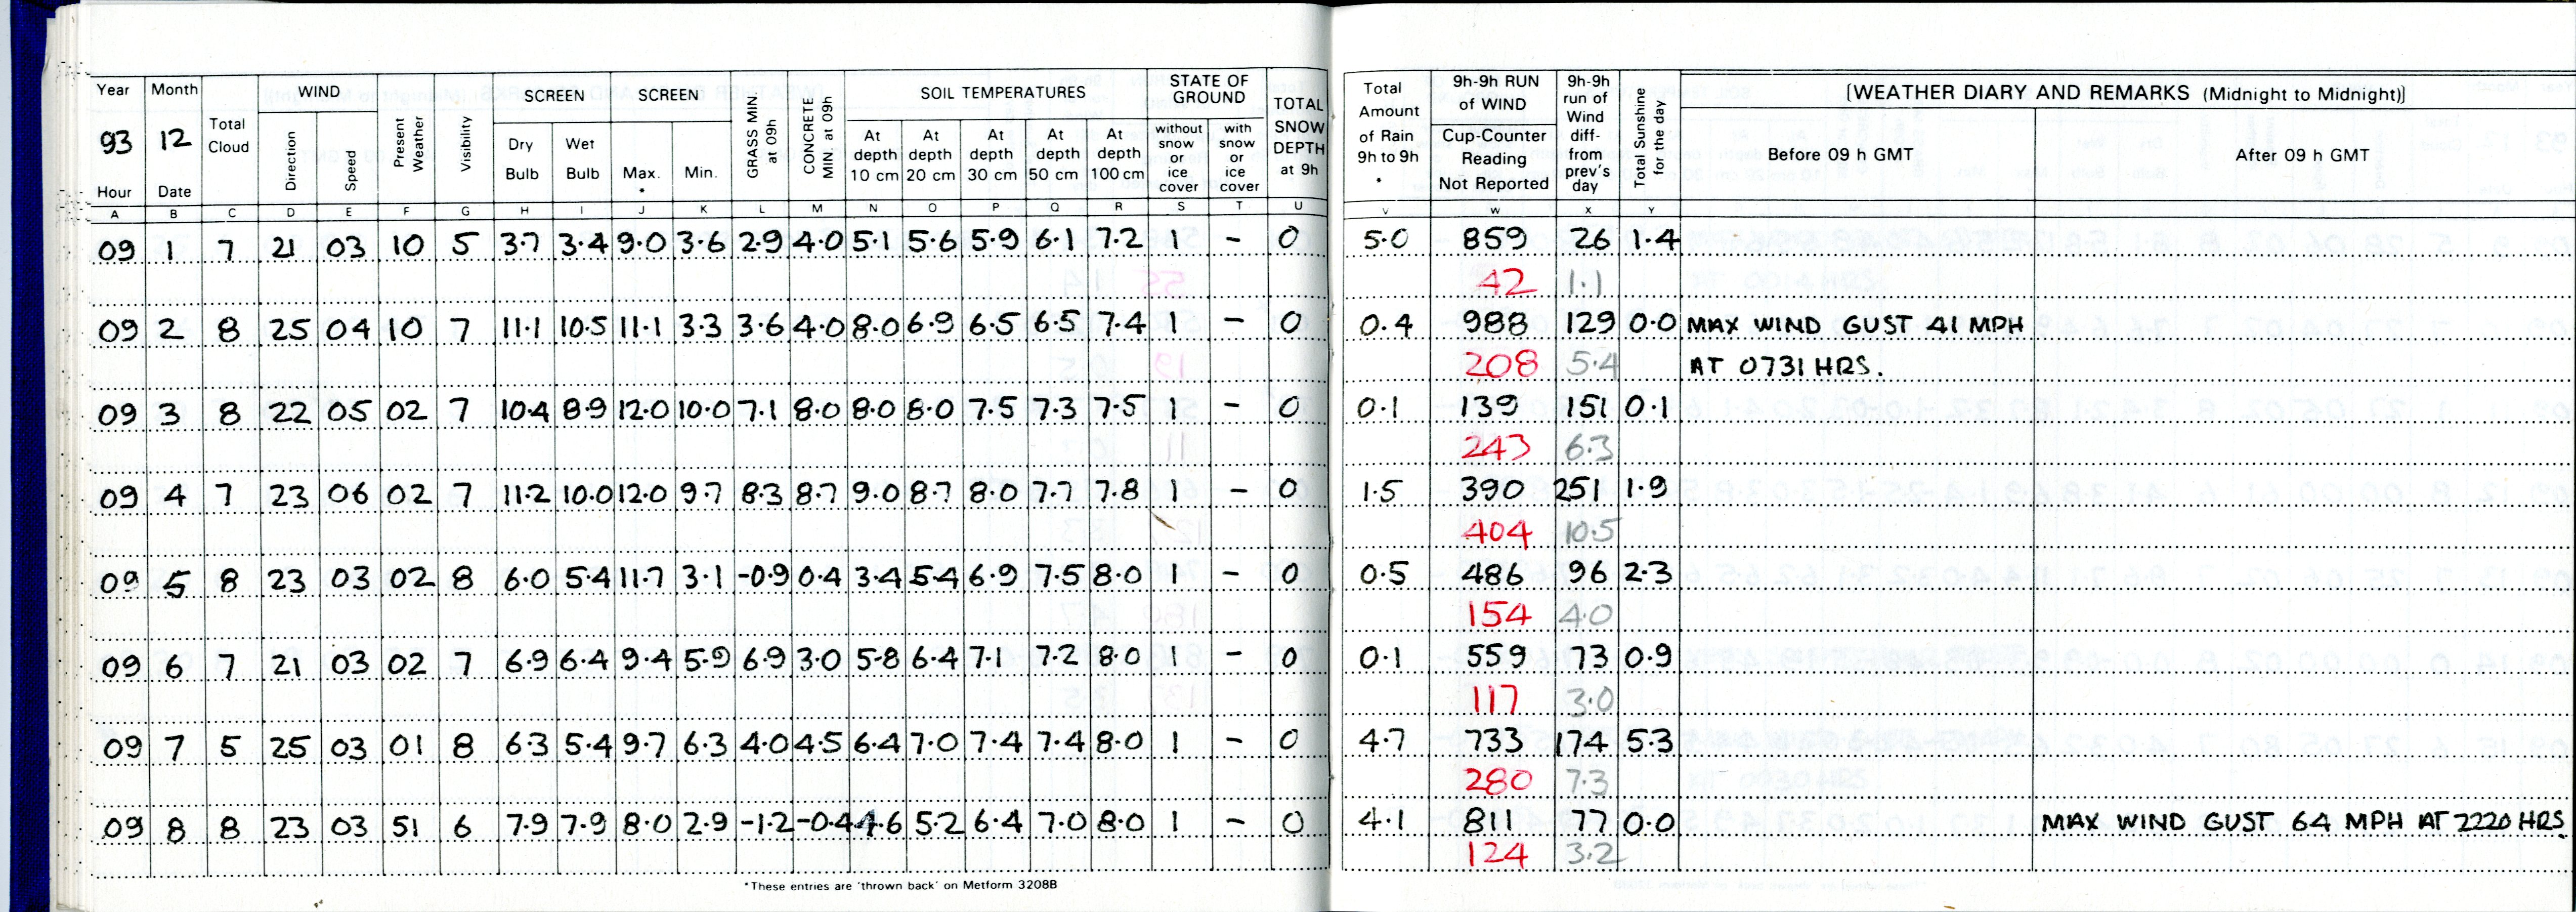 Year Month Total Cloud WIND Present Weather Visibility SCREEN SCREEN GRASS MIN at 09h CONCRETE MIN at 09h SOIL TEMPERATURES STATE OF GROUND TOTAL SNOW DEPTH at 9h Total Amount of Rain 9h to 9h * 9h-9h RUN of WIND 9h-9h run of Wind diff-from prev's day Total Sunshine for the day [WEATHER DIARY AND REMARKS (Midnight to Midnight)]
93 12 Direction Speed Dry Bulb Wet Bulb Max. * Min. At depth 10 cm At depth 20 cm At depth 30 cm At depth 50 cm At depth 100 cm without snow or ice cover with snow or ice cover Cup-Counter Reading Not Reported Before 09 h GMT After 09 h GMT
Hour Date
A B C D E F G H I J K L M N O P Q R S T U V W X Y
09 1 7 21 03 10 5 3.7 3.4 9.0 3.6 2.9 4.0 5.1 5.6 5.9 6.1 7.2 1 - 0 5.0 859 26 1.4
42 1.1
09 2 8 25 04 10 7 11.1 10.5 11.1 3.3 3.6 4.0 8.0 6.9 6.5 6.5 7.4 1 - 0 0.4 988 129 0.0 MAX WIND GUST 41 MPH
208 5.4 AT 0731 HRS.
09 3 8 22 05 02 7 10.4 8.9 12.0 10.0 7.1 8.0 8.0 8.0 7.5 7.3 7.5 1 - 0 0.1 139 151 0.1
243 6.3
09 4 7 23 06 02 7 11.2 10.0 12.0 9.7 8.3 8.7 9.0 8.7 8.0 7.7 7.8 1 - 0 1.5 390 251 1.9
404 10.5
09 5 8 23 03 02 8 6.0 5.4 11.7 3.1 -0.9 0.4 3.4 5.4 6.9 7.5 8.0 1 - 0 0.5 486 96 2.3
154 4.0
09 6 7 21 03 02 7 6.9 6.4 9.4 5.9 6.9 3.0 5.8 6.4 7.1 7.2 8.0 1 - 0 0.1 559 73 0.9
117 3.0
09 7 5 25 03 01 8 6.3 5.4 9.7 6.3 4.0 4.5 6.4 7.0 7.4 7.4 8.0 1 - 0 4.7 733 174 5.3
280 7.3
09 8 8 23 03 51 6 7.9 7.9 8.0 2.9 -1.2 -0.4 4.6 5.2 6.4 7.0 8.0 1 - 0 4.1 811 77 0.0 MAX WIND GUST 64 MPH AT 2220 HRS
124 3.2
*These entries are 'thrown back' on Metform 3208B